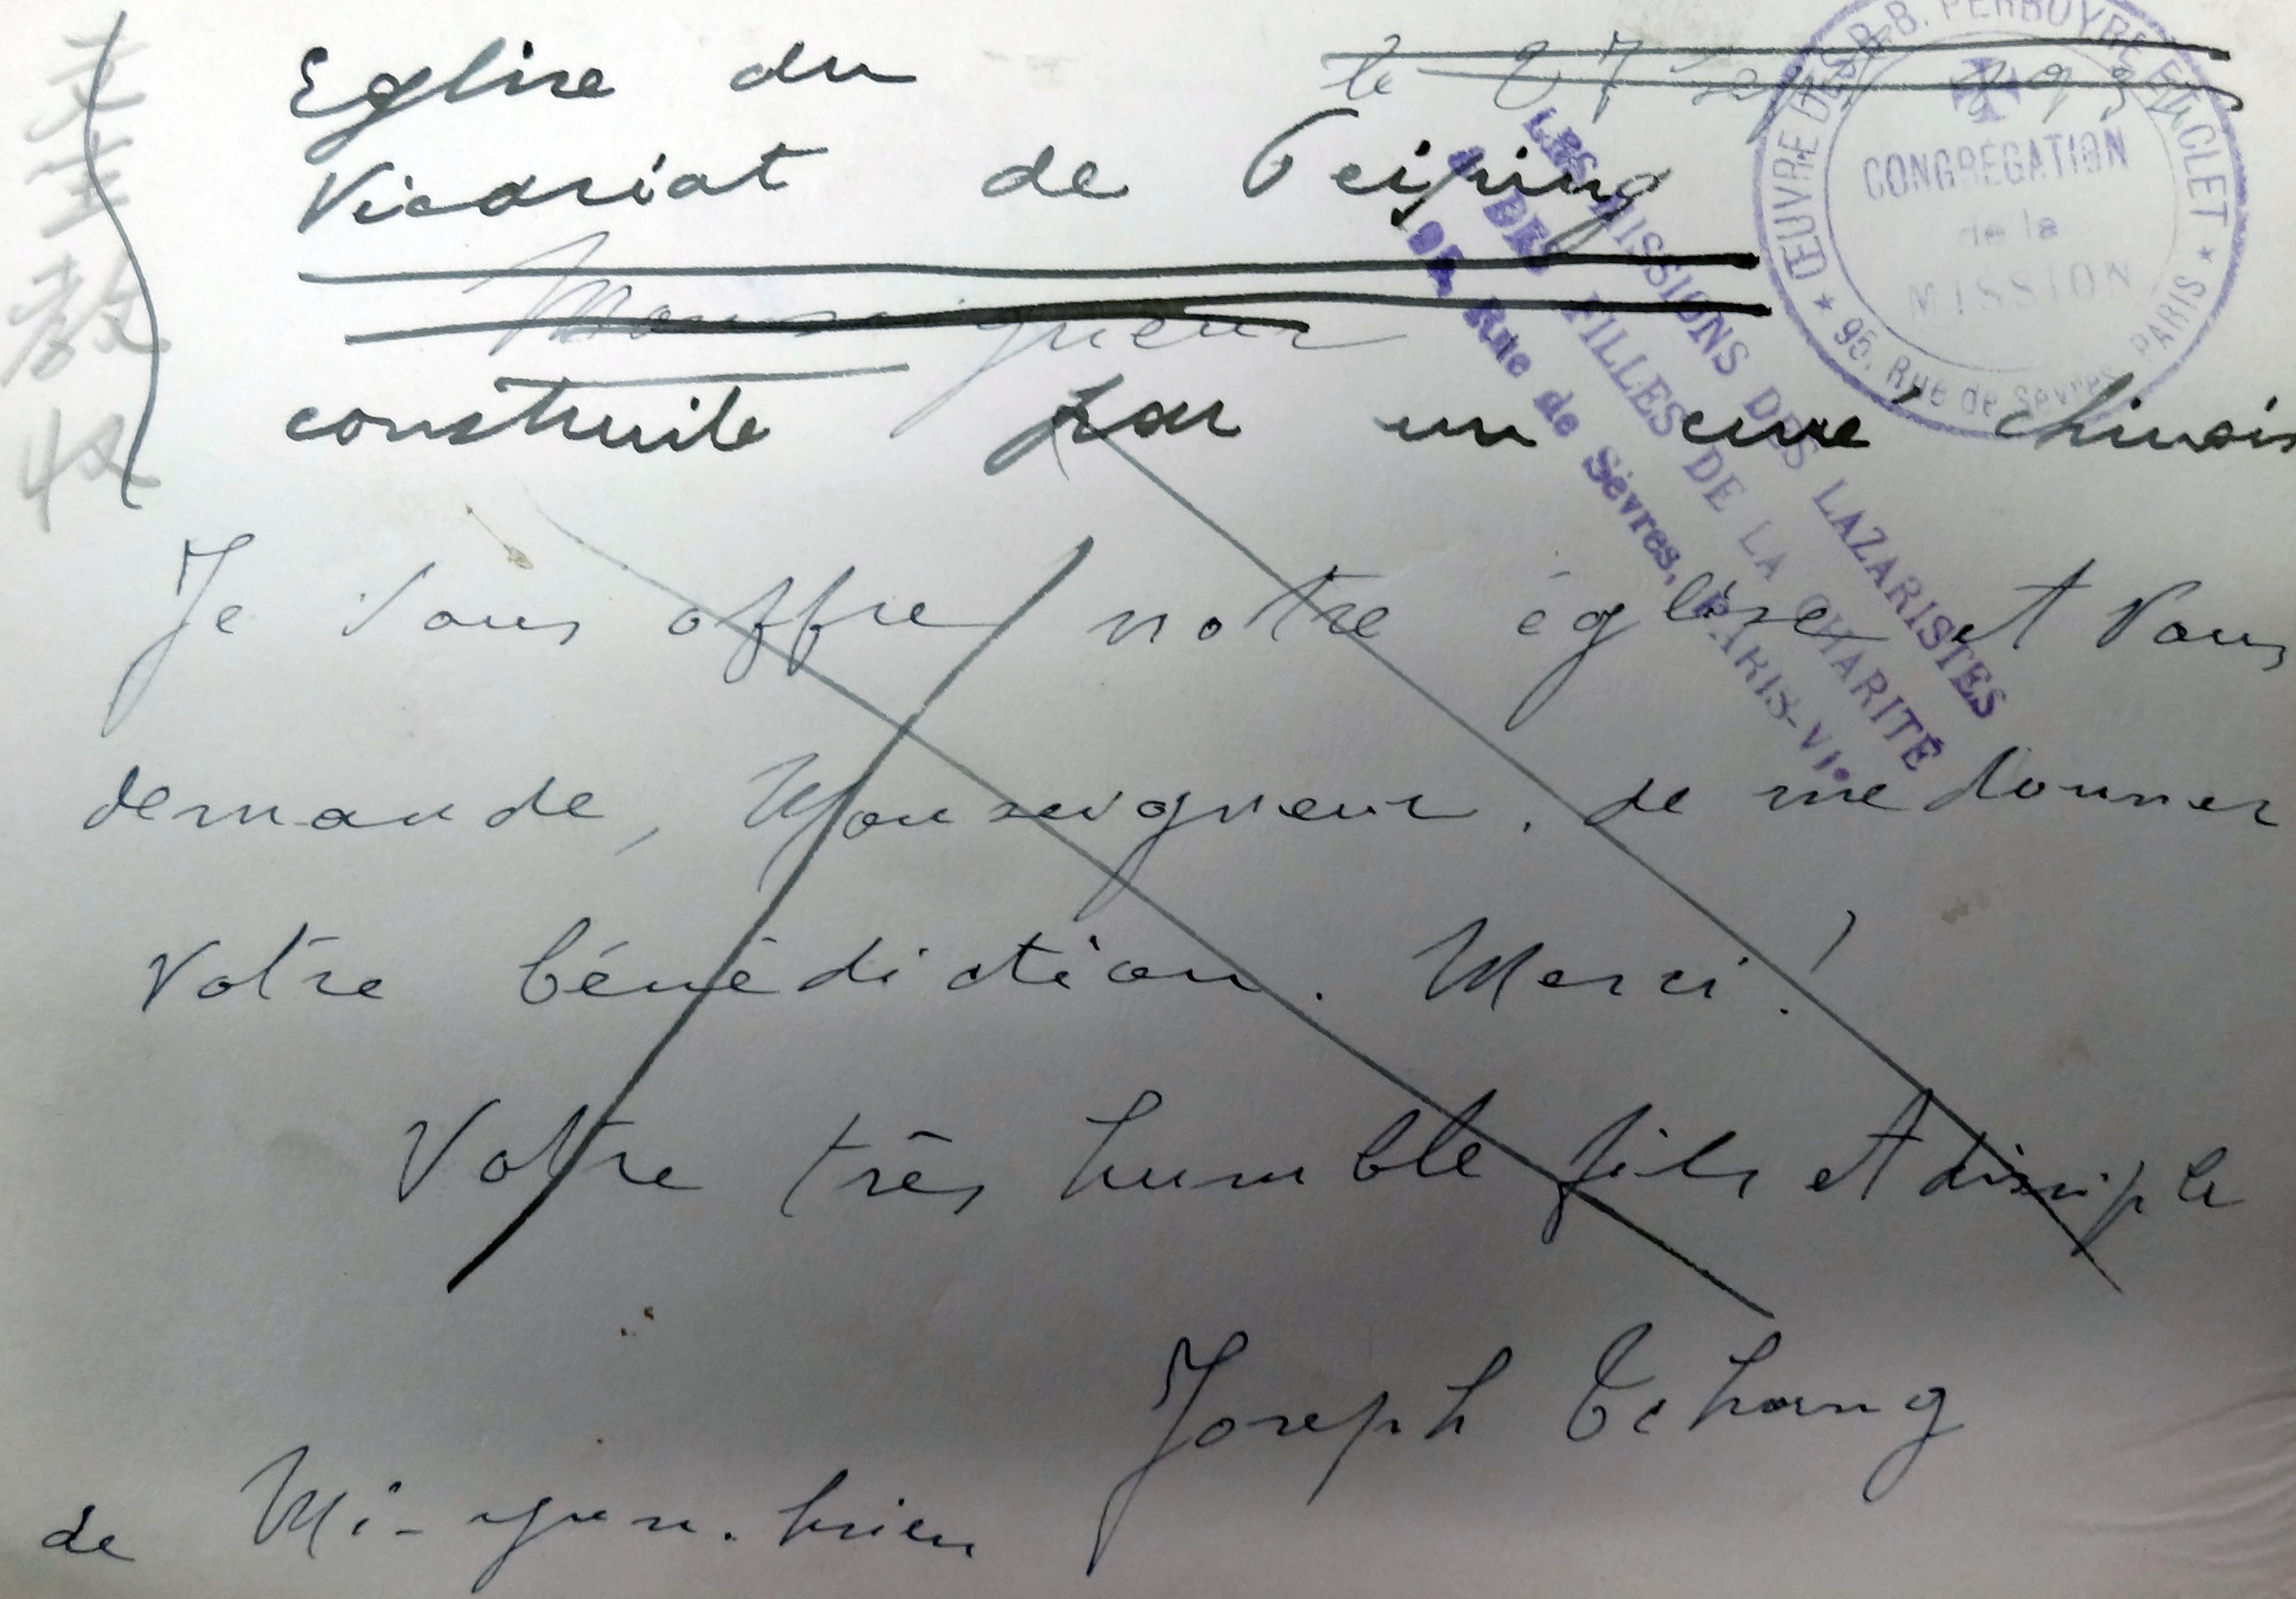 Eglise du
le 27 sept 193
Vicariat de Peiping
Monseigneur
construite par un curé chinois
Je Vous offre notre église et Vous
demande, Monseigneur, de me donner
Votre bénédiction. Merci !
Votre très humble fils et disciple
Joseph Tchang
de Mi-yun-hien
ŒUVRE DES B.B. PERBOYRE ET CLET
CONGRÉGATION
de la
MISSION
★ 95, Rue de Sèvres, PARIS ★
LES MISSIONS DES LAZARISTES
& DES FILLES DE LA CHARITÉ
95, Rue de Sèvres, PARIS-VIe
主
教